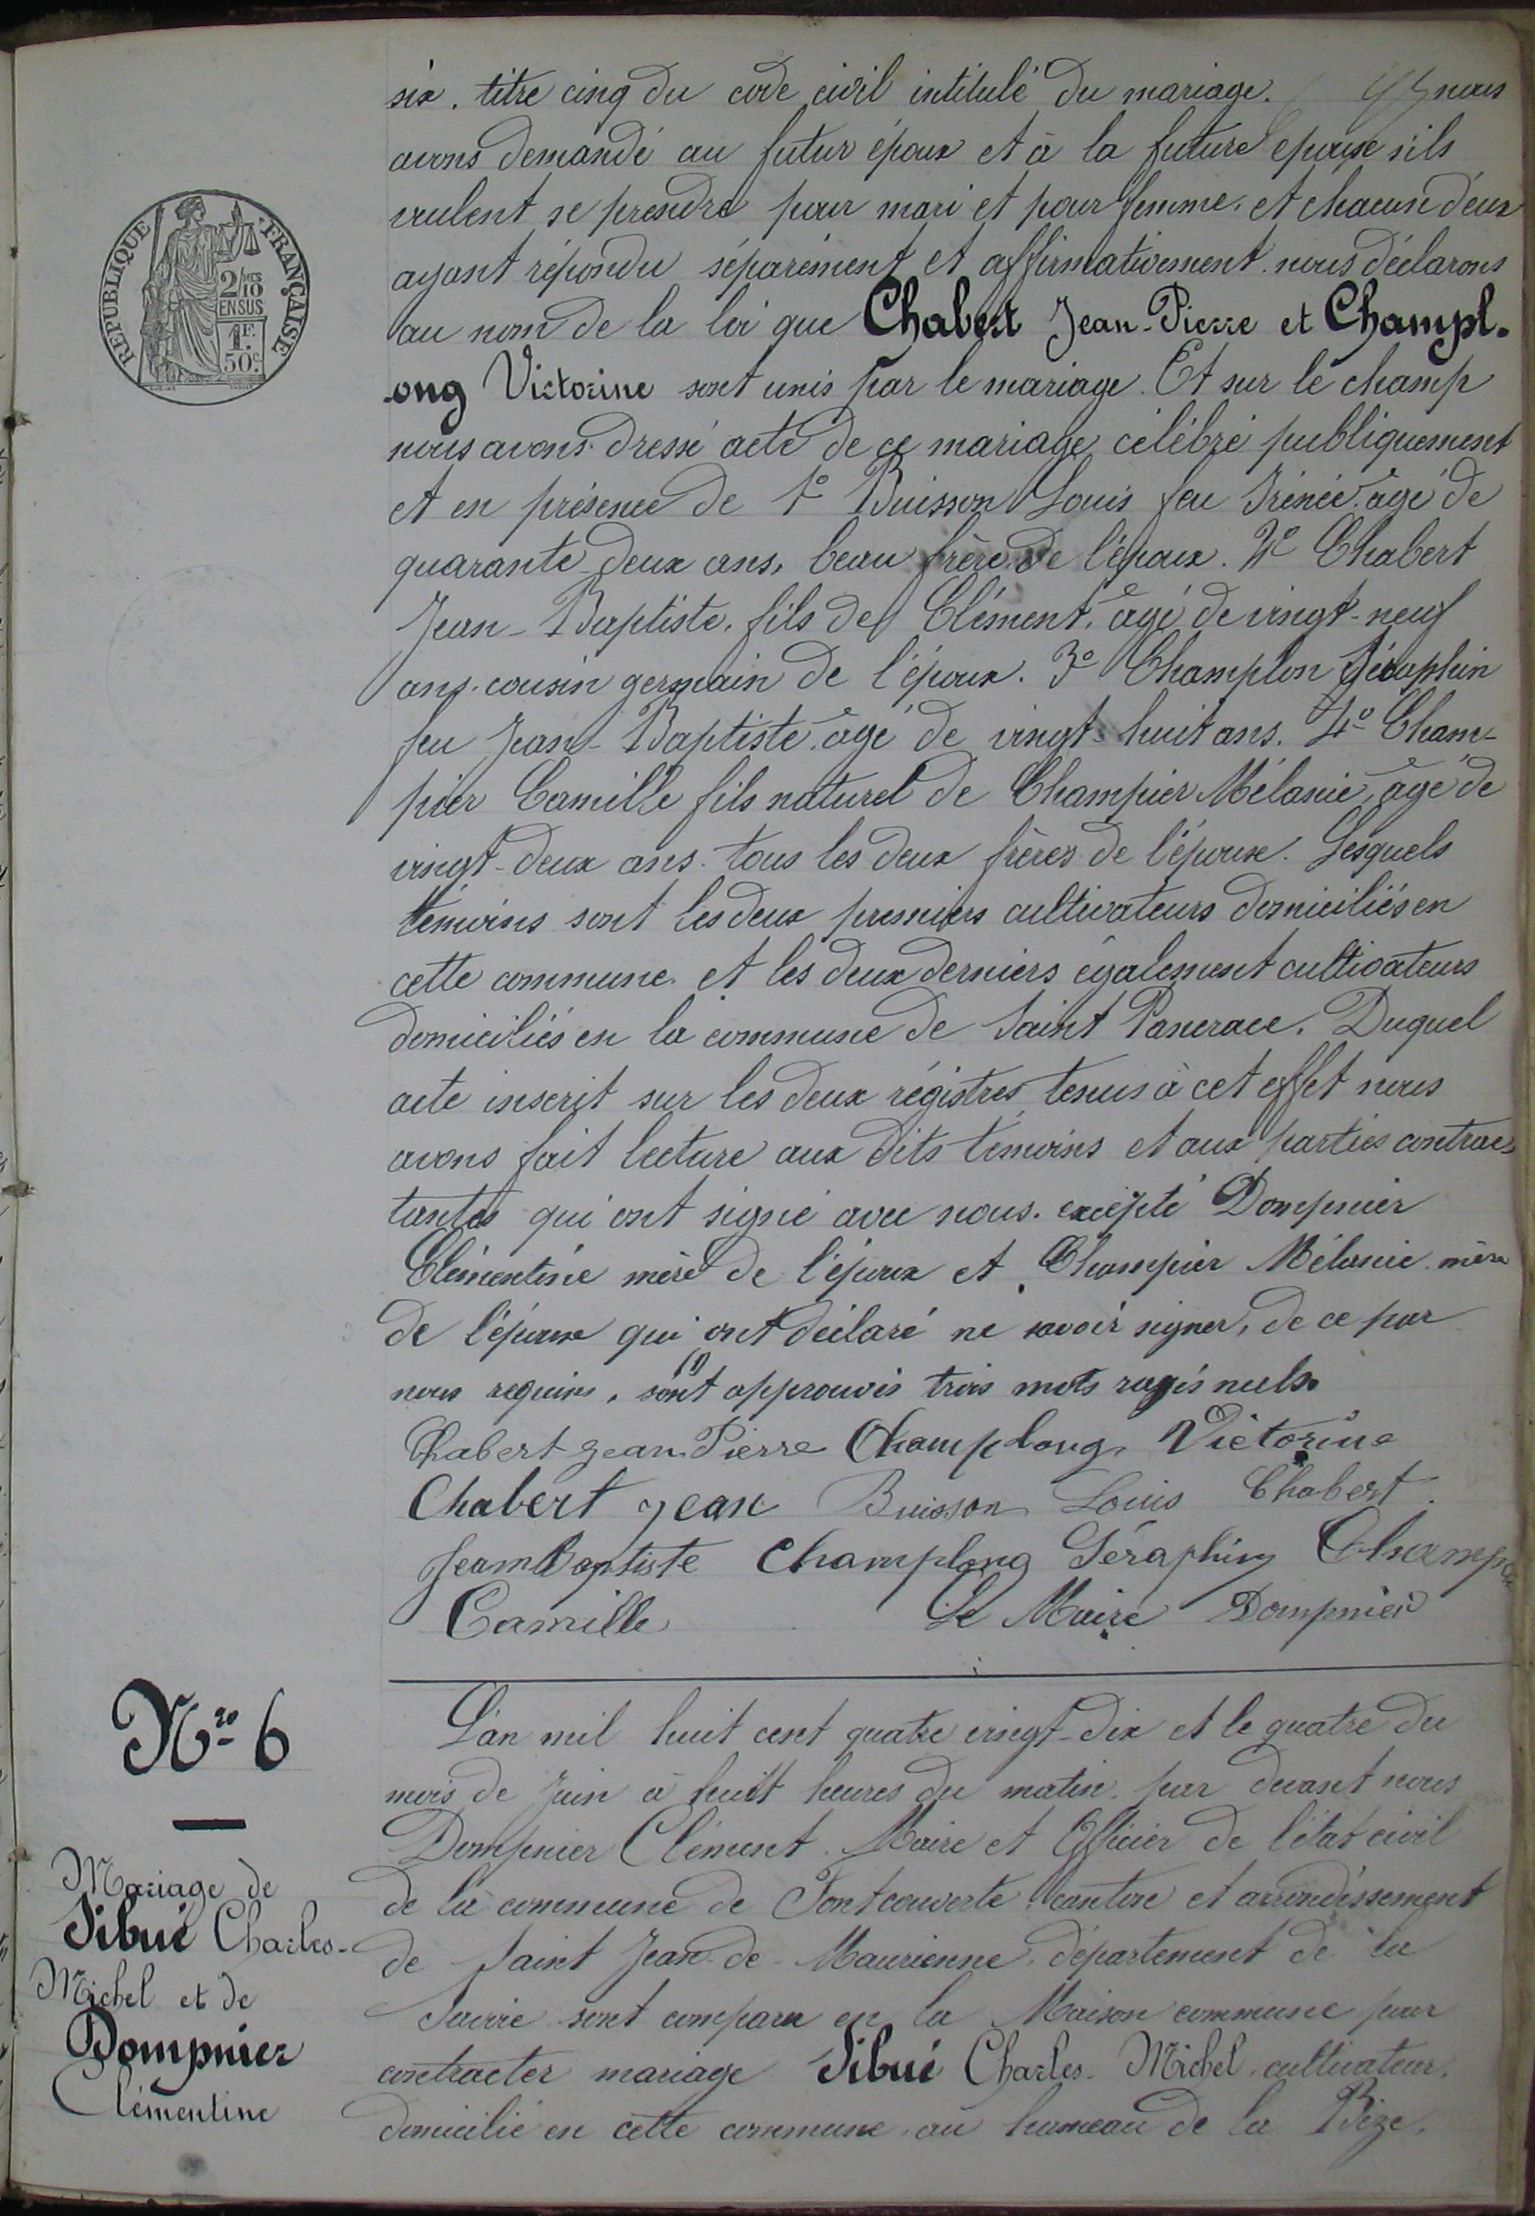 six. titre cinq du code civil intitulé du mariage. nous
avons demandé au futur époux et à la future epouse s'ils
veulent se prendre pour mari et pour femme. et chacun d'eux
ayant répondu séparément et affirmativement. nous déclarons
au nom de la loi que Chabert Jean-Pierre et Champl-
ong Victorine sont unis par le mariage. Et sur le champ
nous avons dressé acte de ce mariage célébré publiquement
et en présence de 1º Buisson Louis feu Irénée âgé de
quarante-deux ans, beau frère de l'époux. 2º Chabert
Jean-Baptiste. fils de Clément. âgé de vingt-neuf
ans. cousin germain de l'époux. 3º Champlon Séraphin
feu Jean-Baptiste âgé de vingt-huit ans. 4º Cham-
pier Camille fils naturel de Champier Mélanie, âgé de
vingt-deux ans. tous les deux frères de l'épouse. Lesquels
témoins sont les deux premiers cultivateurs domiciliés en
cette commune. et les deux derniers également cultivateurs
domiciliés en la commune de Saint Pancrace. Duquel
acte inscrit sur les deux régistres tenus à cet effet nous
avons fait lecture aux dits témoins et aux parties contrac-
tantes qui ont signé avec nous. excepté Dompnier
Clémentine mère de l'époux et Champier Mélanie mère
de l'épouse qui ont déclaré ne savoir signer, de ce par
nous requis. (1) sont approuvés trois mots rayés nuls.
Chabert Jean Pierre Champlong Victorine
Chabert Jean Buisson Louis Chabert
Jean Baptiste Champlong Séraphin Champier
Camille Le Maire Dompnier
REPUBLIQUE FRANÇAISE
2/10 EN SUS
1F. 50c.
Nro 6
Mariage de
Sibué Charles-
Michel et de
Dompnier
Clémentine
L'an mil huit cent quatre vingt-dix et le quatre du
mois de Juin à huit heures du matin. par devant nous
Dompnier Clément. Maire et Officier de l'état civil
de la commune de Fontcouverte canton et arrondissement
de Saint Jean-de-Maurienne. département de la
Savoie sont comparu en la Maison commune pour
contracter mariage Sibué Charles-Michel. cultivateur.
domicilié en cette commune. au hameau de la Bize.